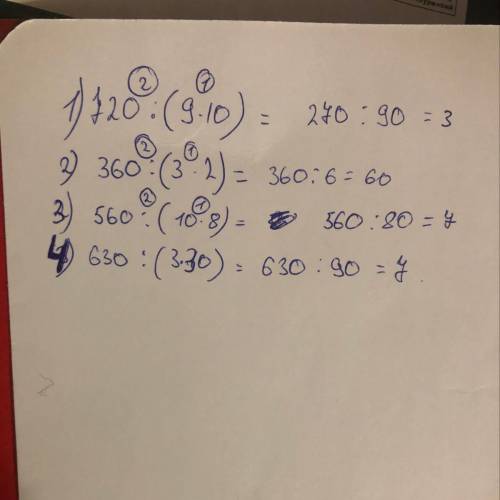 ② ①
1) 720 : (9·10) = 270 : 90 = 3
② ①
2) 360 : (3·2) = 360 : 6 = 60
② ①
3) 560 : (10·8) = 560 : 80 = 7
4) 630 : (3·30) = 630 : 90 = 7